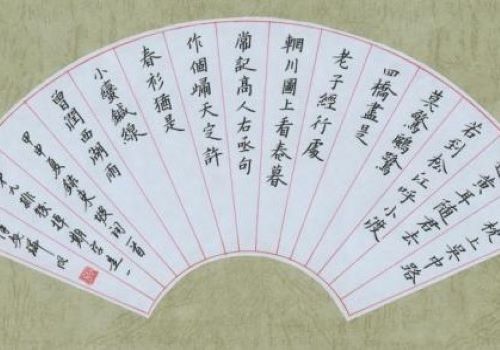 枕上吳中路
黃耳隨君去
若到松江呼小渡
莫驚鷗鷺
四橋盡是
老子經行處
輞川圖上看春暮
常記高人右丞句
作個歸天定許
春衫猶是
小蠻鍼線
曾西湖雨
甲申夏錄東坡詞一首